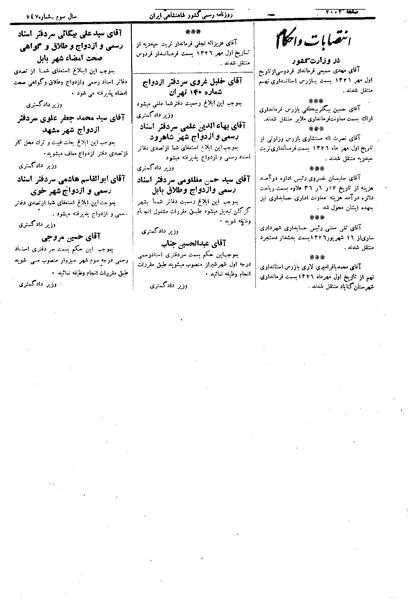 صفحه ۲۰۰۲
روزنامه رسمی کشور شاهنشاهی ایران
سال سوم ـ شماره ۷۴۷
انتصابات و احکام
در وزارت کشور
آقای مهدی سمیعی فرماندار فردوس از تاریخ
اول مهر ۱۳۲۶ بسمت بازرس استانداری
نهم منتقل شدند.
آقای حسین بیگلر بیگی بازرس فرمانداری
اراک بسمت فرمانداری ملایر منتقل شدند.
آقای نصرت اله مستشاری بازرس وزارتی از
تاریخ اول مهر ماه ۱۳۲۶ بسمت فرمانداری تربت
حیدریه منتقل شدند.
آقای سلیمان خسروی رئیس اداره درآمد
هزینه از تاریخ
دائره درآمد هزینه معاونت اداری حسابداری نیز
بعهده ایشان محول شد.
آقای تقی سنتی رئیس حسابداری شهرداری
ساری از ۱۶ شهریور ۱۳۲۶ بسمت بخشدار دستجرد
منتقل شدند.
آقای محمد باقر امیری لاری بازرس استانداری
نهم از تاریخ اول مهر ماه ۱۳۲۶ بسمت فرمانداری
شهرستان گناباد منتقل شدند.
آقای عزیزاله نجفی فرماندار تربت حیدریه از
تاریخ اول مهر ۱۳۲۶ بسمت فرماندار فردوس
منتقل شدند.
آقای خلیل غروی سردفتر ازدواج
شماره ۱۴۰ تهران
بموجب این ابلاغ رسمیت دفتر شما ملغی میشود
وزیر دادگستری
آقای بهاء الدین علمی سردفتر اسناد
رسمی و ازدواج شهر شاهرود
بموجب این ابلاغ استعفای شما از تصدی دفاتر
اسناد رسمی و ازدواج پذیرفته میشود.
وزیر دادگستری
آقای سید حسن مظلومی سردفتر اسناد
رسمی و ازدواج و طلاق بابل
بموجب این ابلاغ رسمیت دفاتر شما بشهر
گرگان تبدیل میشود طبق مقررات مشغول انجام
وظیفه شوید.
وزیر دادگستری
آقای عبدالحسین جناب
بموجب این حکم بسمت سردفتری اسناد رسمی
درجه اول شهر شیراز منصوب میشوید طبق مقررات
انجام وظیفه نمائید.
وزیر دادگستری
آقای سید علی بیکائی سردفتر اسناد
رسمی و ازدواج و طلاق و گواهی
صحت امضاء شهر بابل
بموجب این ابلاغ استعفای شما از تصدی
دفاتر اسناد رسمی و ازدواج و طلاق و گواهی صحت
امضاء پذیرفته می شود.
وزیر دادگستری
آقای سید محمد جعفر علوی سردفتر
ازدواج شهر مشهد
بموجب این ابلاغ بعلت غیبت و ترک محل کار
از تصدی دفتر ازدواج معاف میشوید.
وزیر دادگستری
آقای ابوالقاسم هاشمی سردفتر اسناد
رسمی و ازدواج شهر خوی
بموجب این ابلاغ استعفای شما از تصدی دفاتر
اسناد رسمی و ازدواج پذیرفته میشود.
وزیر دادگستری
آقای حسین مروجی
بموجب این حکم بسمت سر دفتری اسناد
رسمی درجه سوم شهر سبزوار منصوب می شوید
طبق مقررات انجام وظیفه نمائید.
وزیر دادگستری